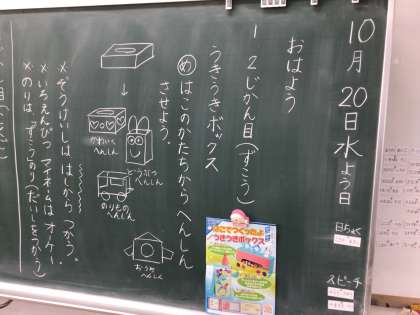 10月20日水よう日
日ちょく
スピーチ
おはよう
1 2じかん目(ずこう)
うきうきボックス
め はこのかたちからへんしん
させよう。
かわいくへんしん
どうぶつへんしん
のりものへんしん
おうちへんしん
×ぞうけいしははしからつかう。
×いろえんぴつ、マイネームはオッケー。
×のりは、「ずこうのり(だいしをつかう)
はこでつくったよ
うきうきボックス